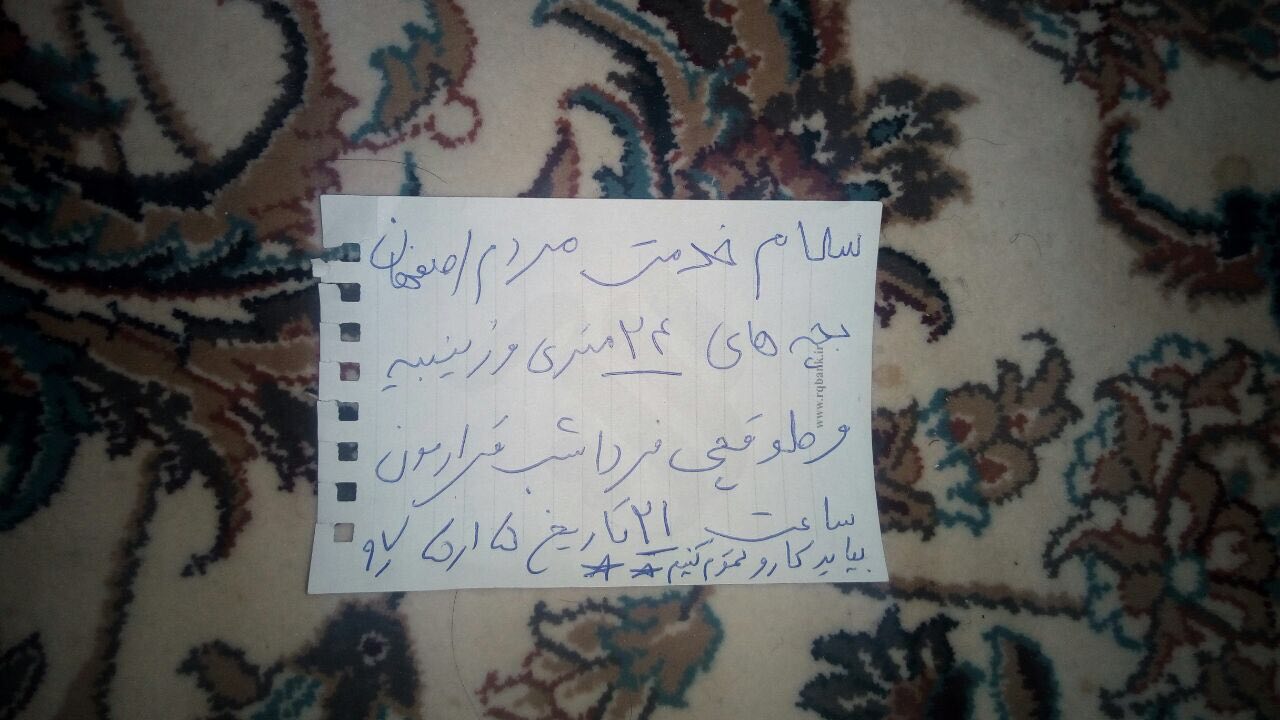 سلام خدمت مردم اصفهان
بچه های ۲۴ متری و زینبیه
و طوقچی فردا شب قرارمون
ساعت ۲۱ تاریخ ۵ ار۵ ۹۷
بیاید کارو تموم کنیم
www.rqbank.ir